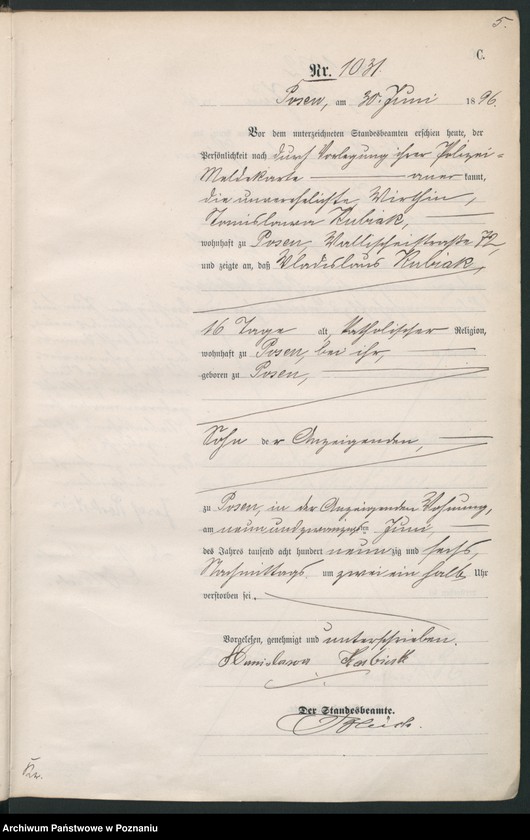 5.
C.
Nr. 1031.
Posen, am 30. Juni 1896.
Vor dem unterzeichneten Standesbeamten erschien heute, der
Persönlichkeit nach durch Vorlegung ihrer Polizei=
Meldekarte anerkannt,
die unverehelichte Wirthin,
Stanislawa Kubiak,
wohnhaft zu Posen, Wallischeistraße 72,
und zeigte an, daß Vladislaus Kubiak,
16 Tage alt, katholischer Religion,
wohnhaft zu Posen, bei ihr,
geboren zu Posen,
Sohn der Anzeigenden,
zu Posen, in der Anzeigenden Wohnung,
am neunundzwanzigsten Juni,
des Jahres tausend acht hundert neunzig und sechs,
Nachmittags um zwei ein halb Uhr
verstorben sei.
Vorgelesen, genehmigt und unterschrieben.
Stanislawa Kubiak
Der Standesbeamte.
Archiwum Państwowe w Poznaniu